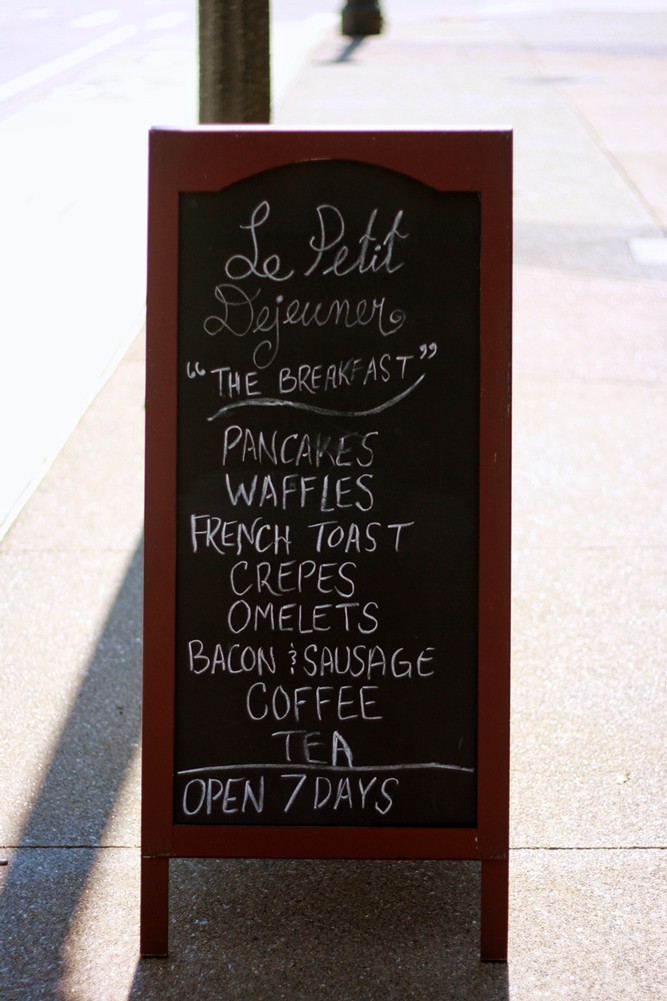 Le Petit
Dejeuner
“THE BREAKFAST”
PANCAKES
WAFFLES
FRENCH TOAST
CREPES
OMELETS
BACON & SAUSAGE
COFFEE
TEA
OPEN 7 DAYS